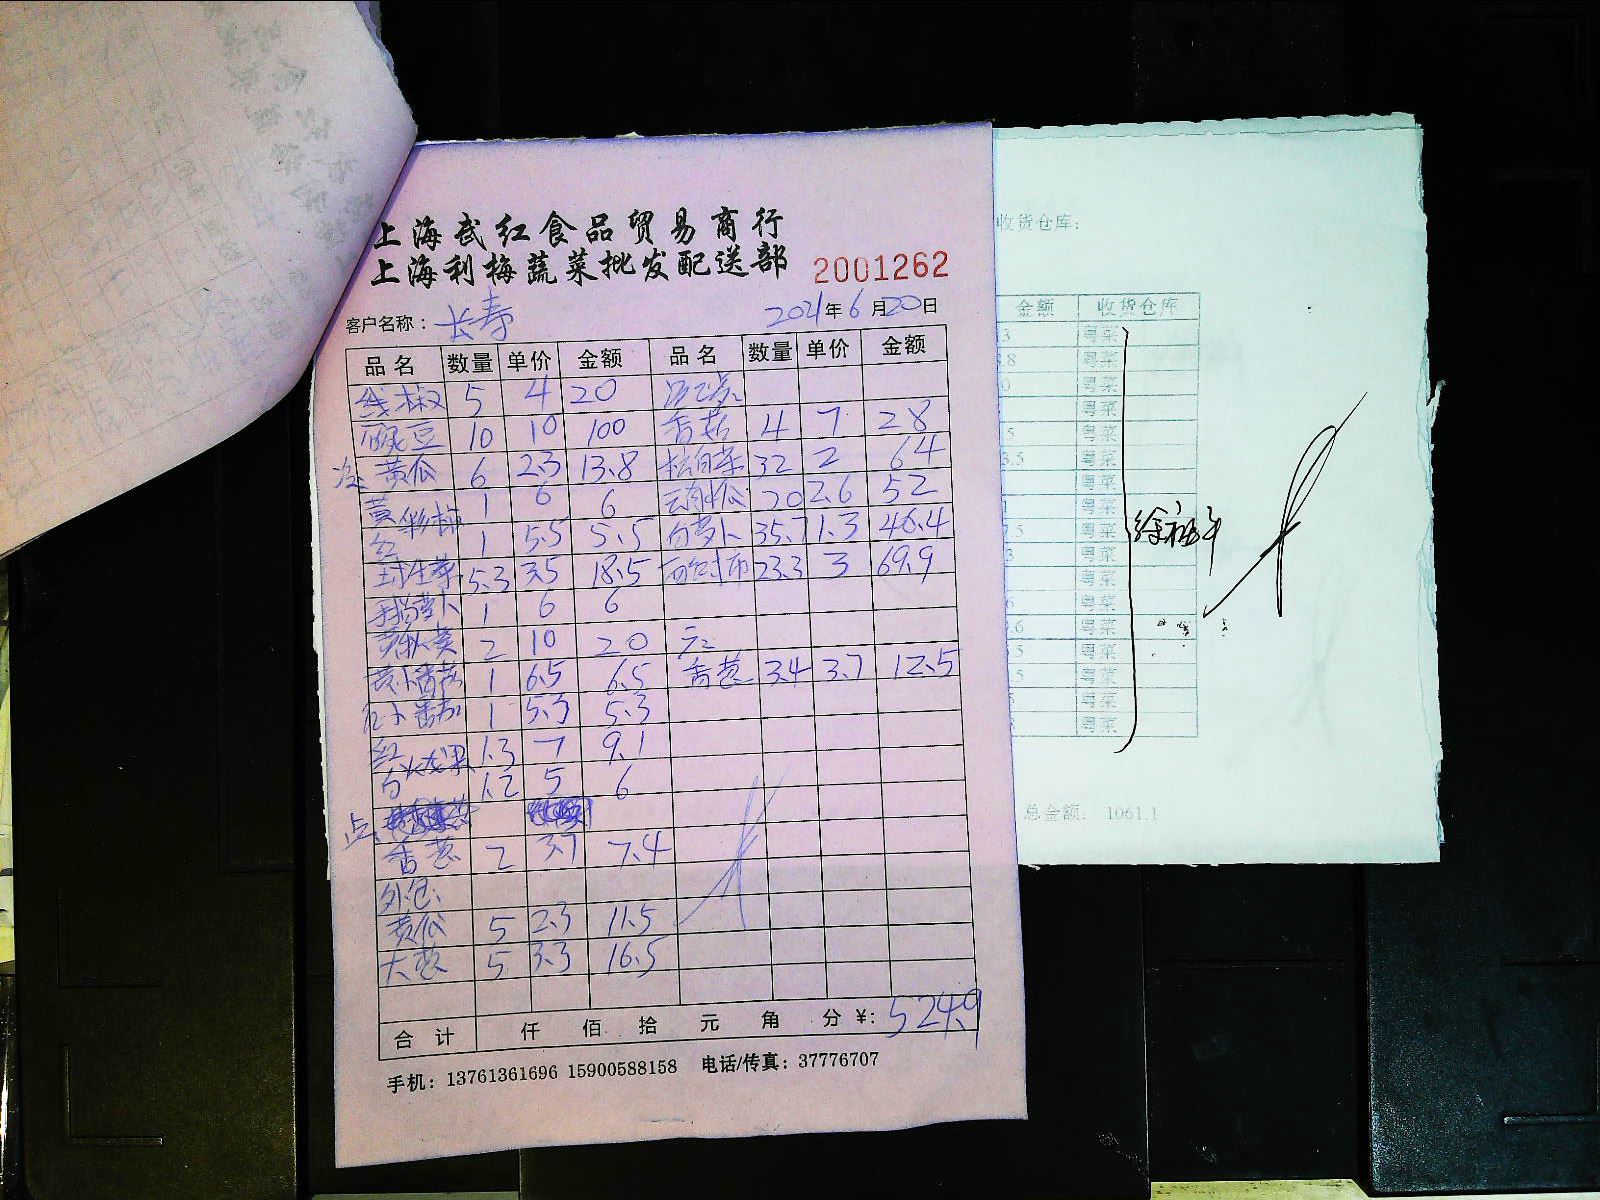 上海武红食品贸易商行
上海利梅蔬菜批发配送部 2001262
客户名称：长寿 2021年6月20日
品名 数量 单价 金额 品名 数量 单价 金额
线椒 5 4 20
豌豆 10 10 100 香菇 4 7 28
冷 黄瓜 6 2.3 13.8 杭白菜 32 2 64
黄彩椒 1 6 6 20 2.6 52
红 1 5.5 5.5 白萝卜 35.7 1.3 46.4
球生菜 5.3 3.5 18.5 西红柿 23.3 3 69.9
手指萝卜 1 6 6
黄秋葵 2 10 20
黄小番茄 1 6.5 6.5 香葱 3.4 3.7 12.5
红小番茄 1 5.3 5.3
红火龙果 1.3 7 9.1
白 1.2 5 6
点
香葱 2 3.7 7.4
外包:
黄瓜 5 2.3 11.5
大葱 5 3.3 16.5
合计 仟 佰 拾 元 角 分 ¥: 524.9
手机：13761361696 15900588158 电话/传真：37776707
收货仓库:
金额 收货仓库
3 粤菜
8.8 粤菜
0 粤菜
粤菜
5 粤菜
3.5 粤菜
粤菜
粤菜
7.5 粤菜
3 粤菜
粤菜
6 粤菜
.6 粤菜
5 粤菜
5 粤菜
粤菜
8 粤菜
总金额: 1061.1